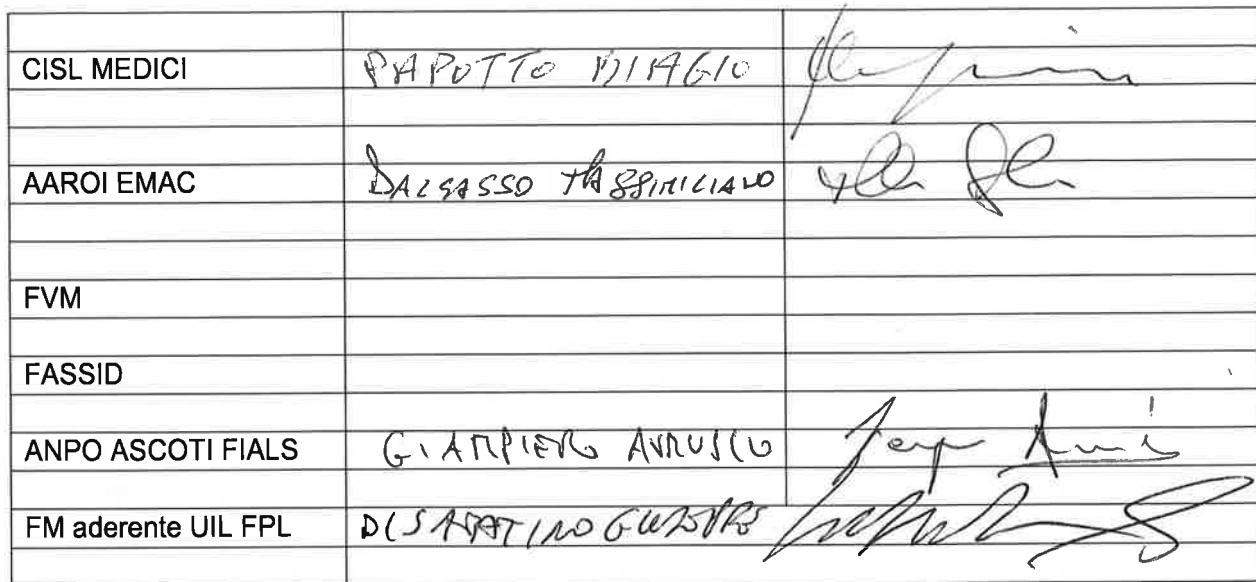 CISL MEDICI PAPOTTO BIAGIO
AAROI EMAC DALSASSO MASSIMILIANO
FVM
FASSID
ANPO ASCOTI FIALS GIAMPIERO AVRUSCIO
FM aderente UIL FPL DI SABATINO GIUSEPPE